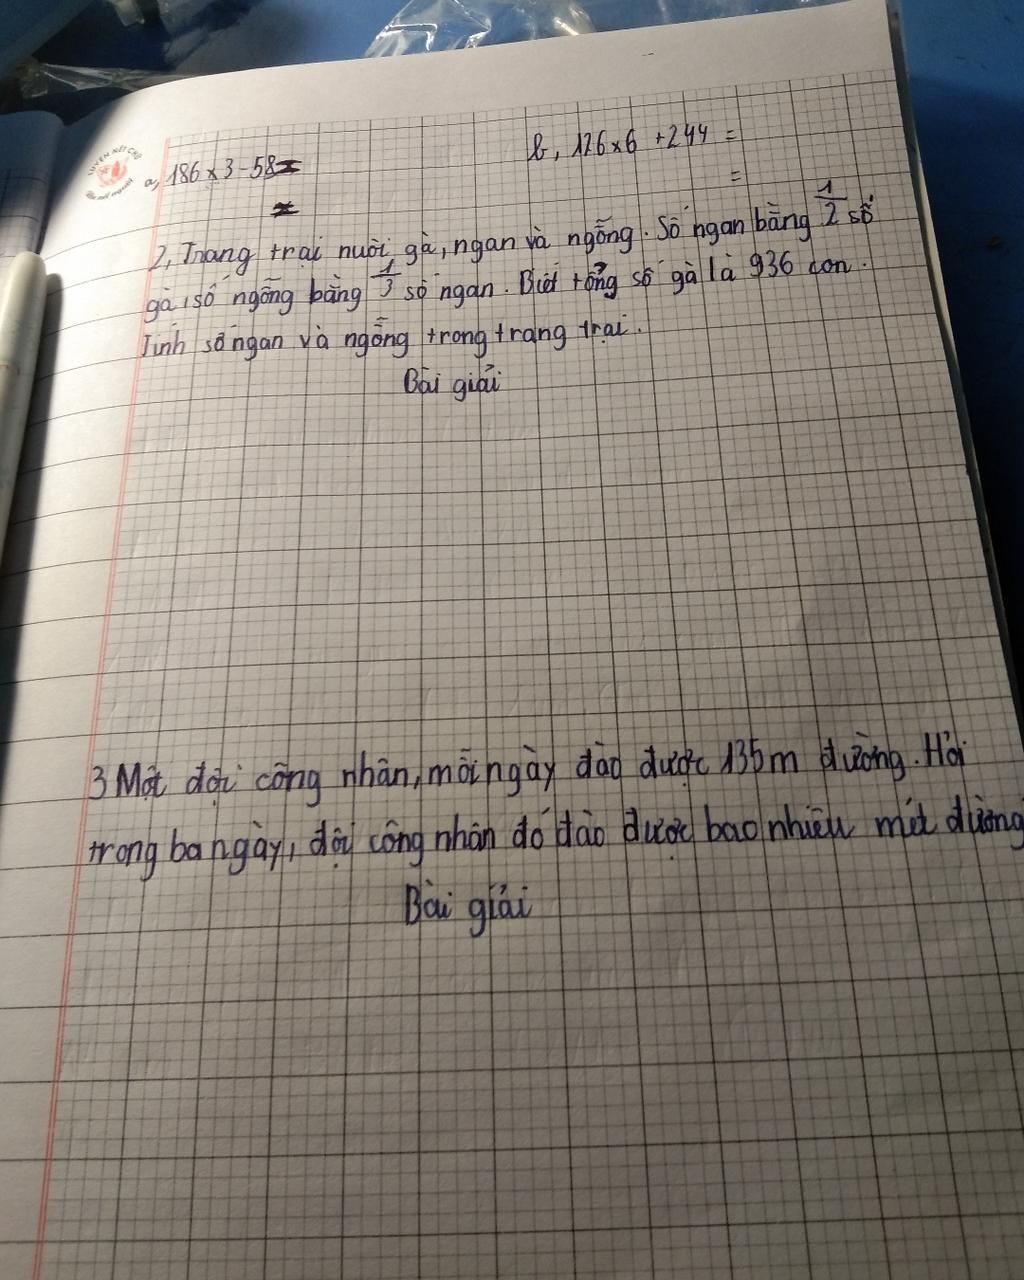 LUYỆN NÉT CHỮ
a, 186 x 3 - 58 =
=
b, 126 x 6 + 244 =
=
2, Trang trại nuôi gà, ngan và ngỗng. Số ngan bằng 1/2 số
gà, số ngỗng bằng 1/3 số ngan. Biết tổng số gà là 936 con.
Tính số ngan và ngỗng trong trang trại.
Bài giải
3 Một đội công nhân, mỗi ngày đào được 135m đường. Hỏi
trong ba ngày, đội công nhân đó đào được bao nhiêu mét đường
Bài giải